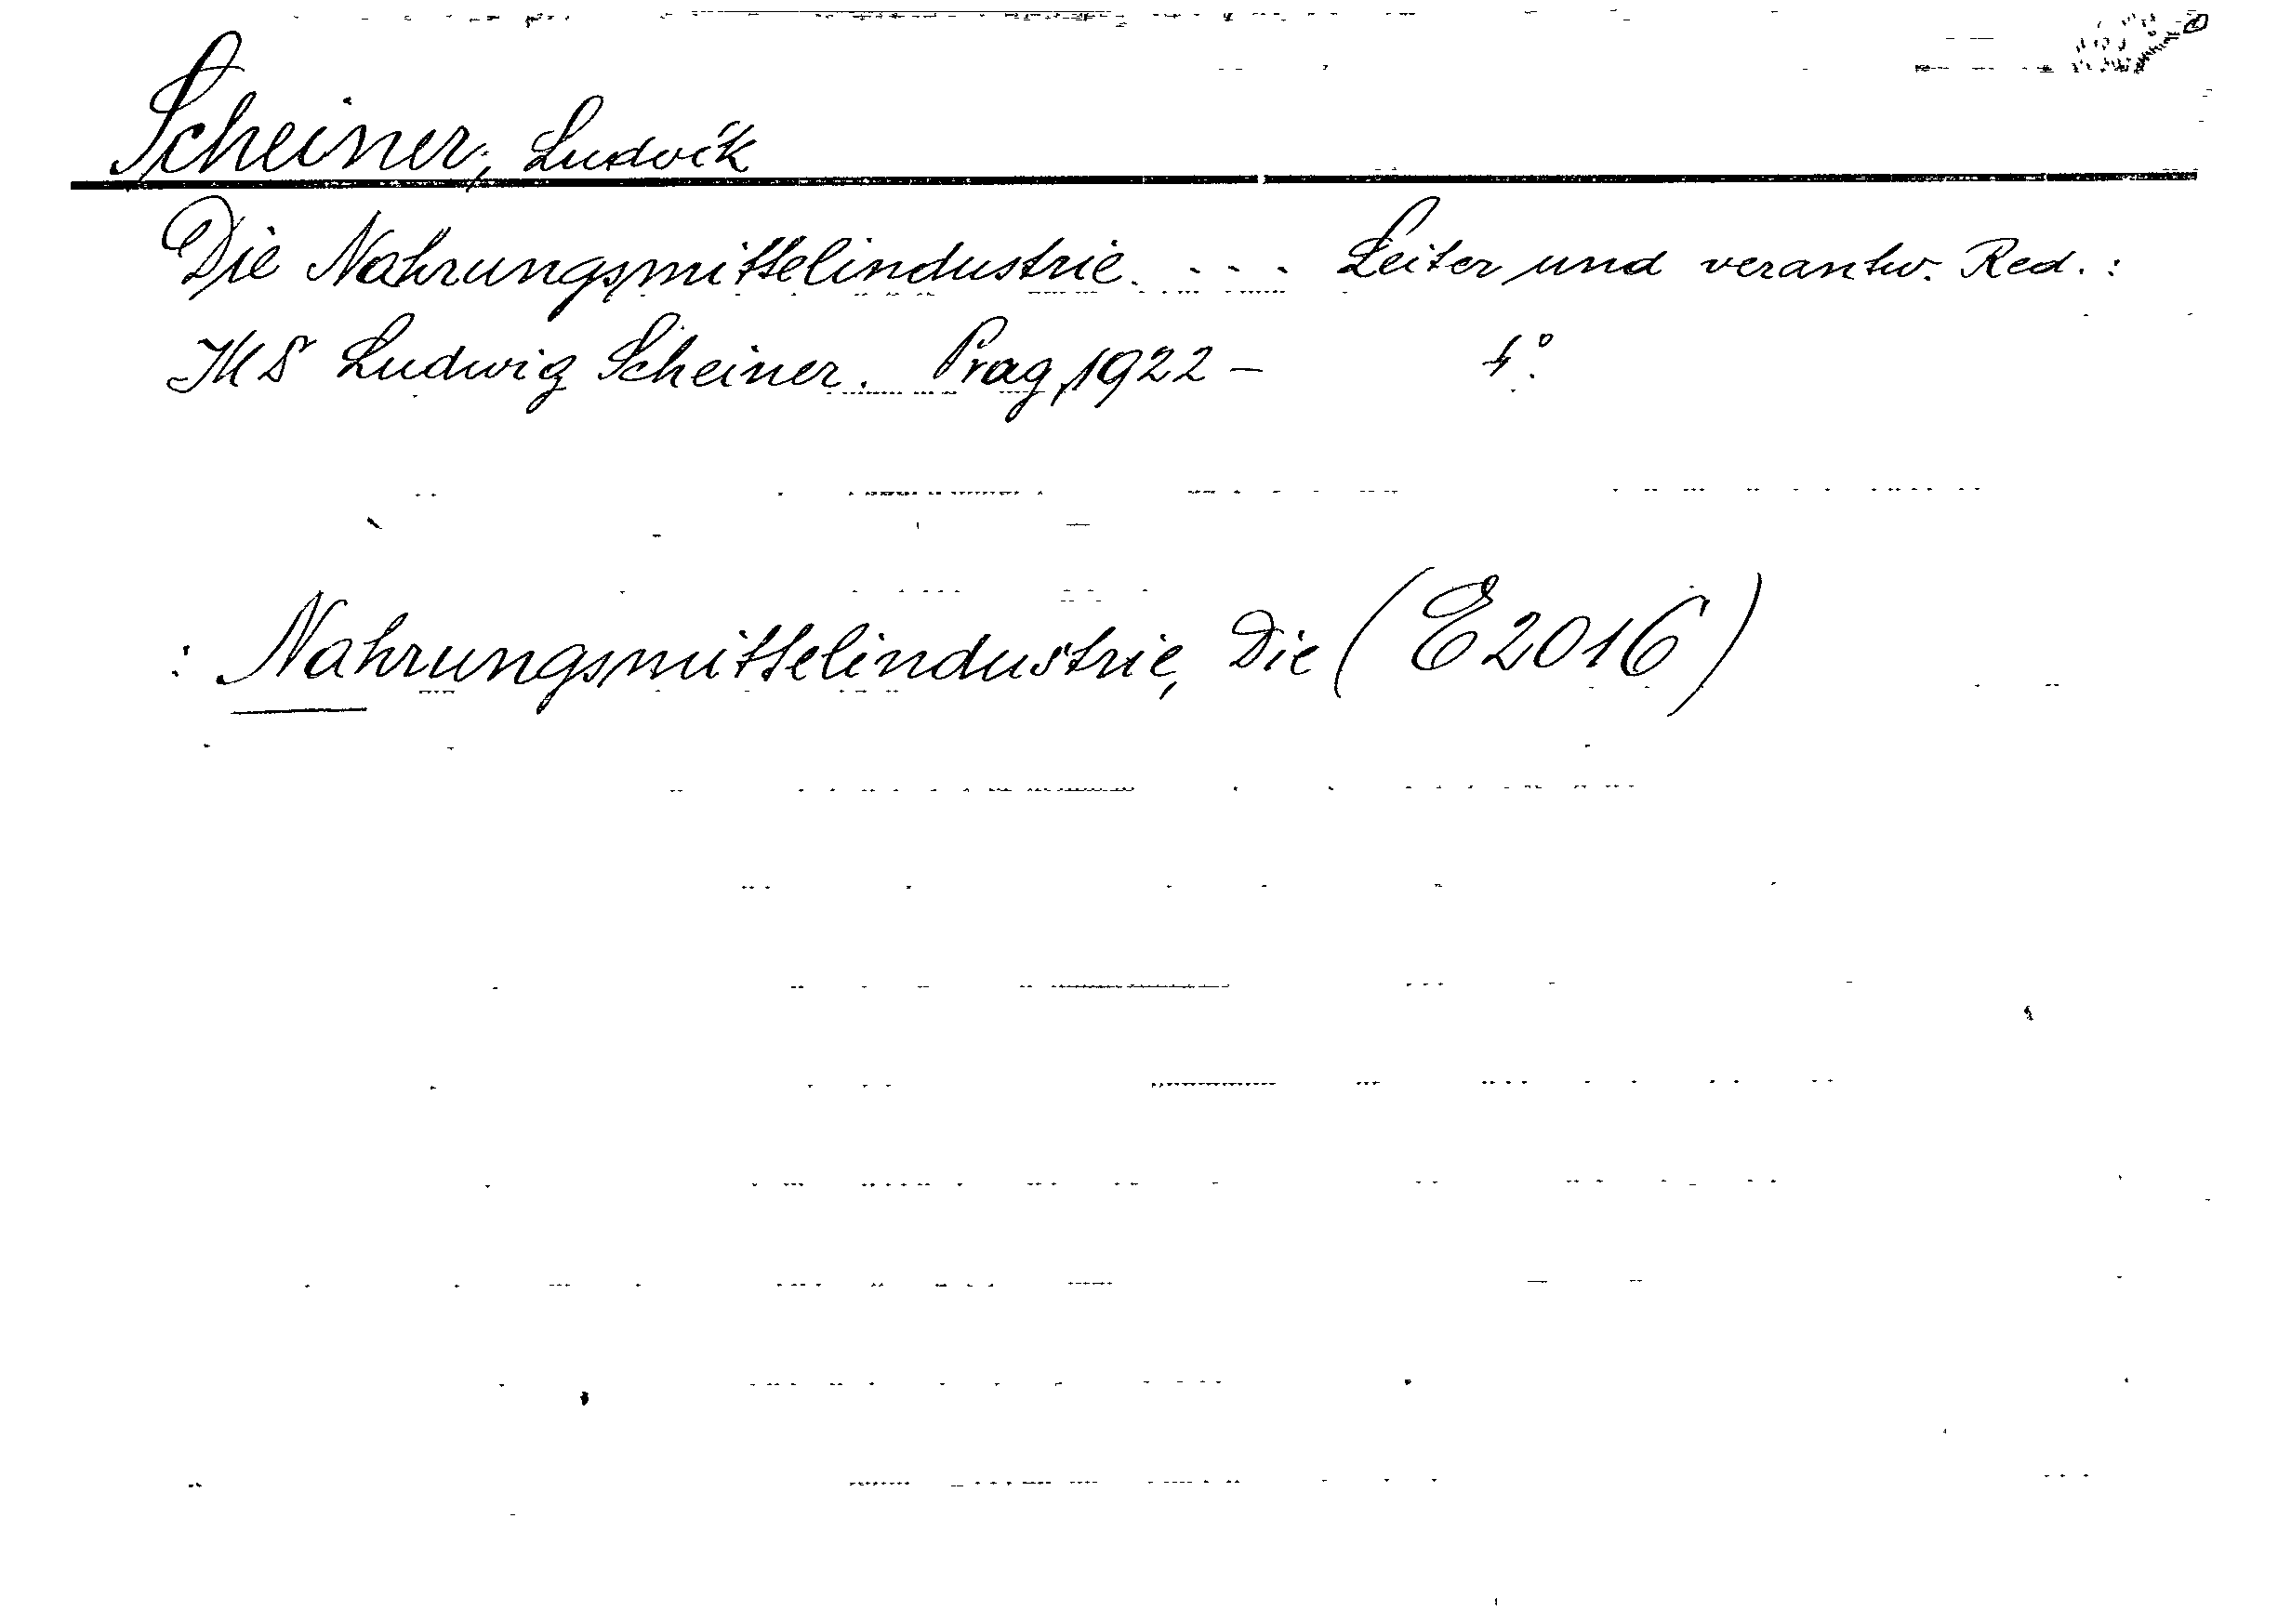 Scheiner, Ludvík
Die Nahrungsmittelindustrie. . . . Leiter und verantw. Red.:
Ludwig Scheiner. Prag, 1922 – 4°.
: Nahrungsmittelindustrie, Die (E 2016)